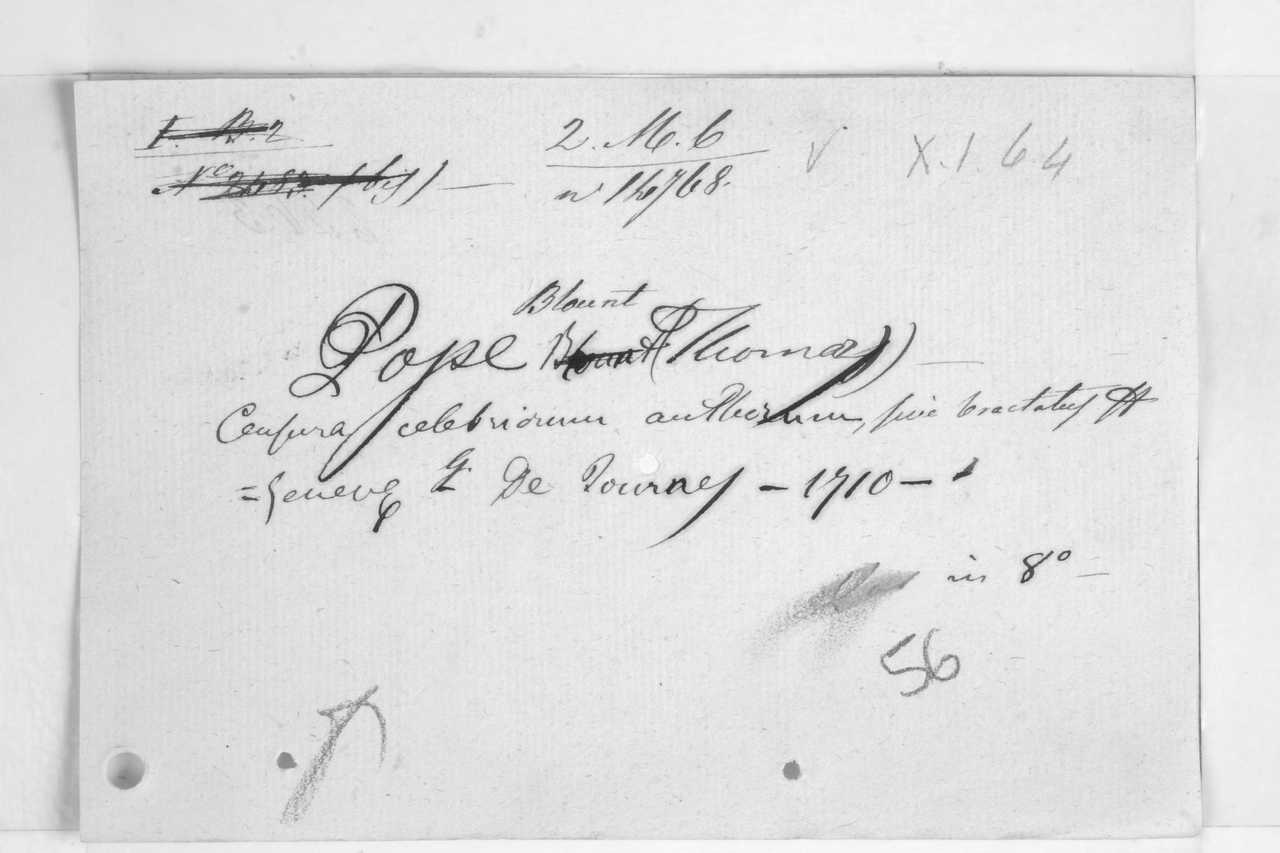 I. B. 2
2. M. 6
V
X. 1. 64
N.º (bis)
nº 14768.
Blount
Pope Blount (Thomas)
Censuras celebriorum authorum, sive tractatus
= Geneve G. De Tournes - 1710 -
in 8º
56